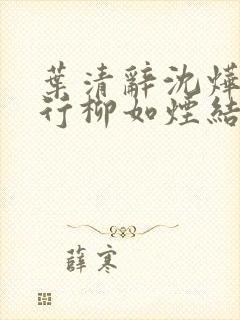 葉清辭沈燁
行柳如煙結
薛寒